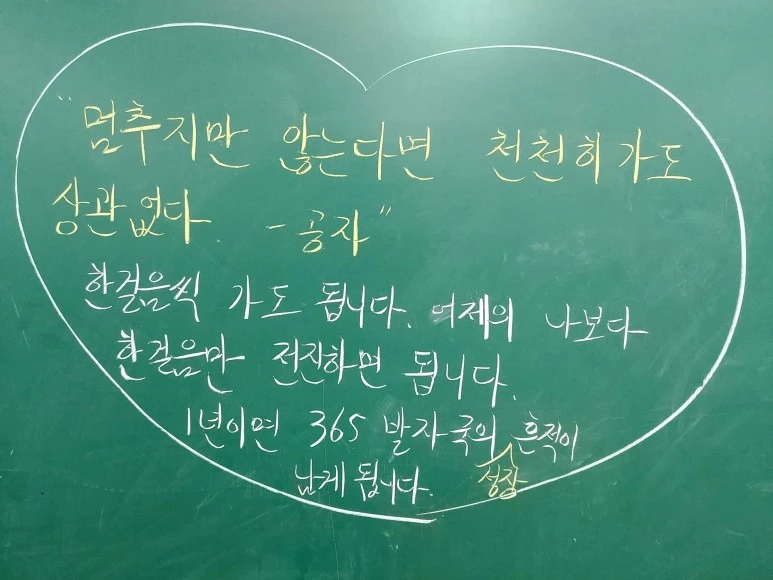 "멈추지만 않는다면 천천히가도
상관없다. - 공자"
한걸음씩 가도 됩니다. 어제의 나보다
한걸음만 전진하면 됩니다.
1년이면 365 발자국의 흔적이
남게 됩니다. 성장